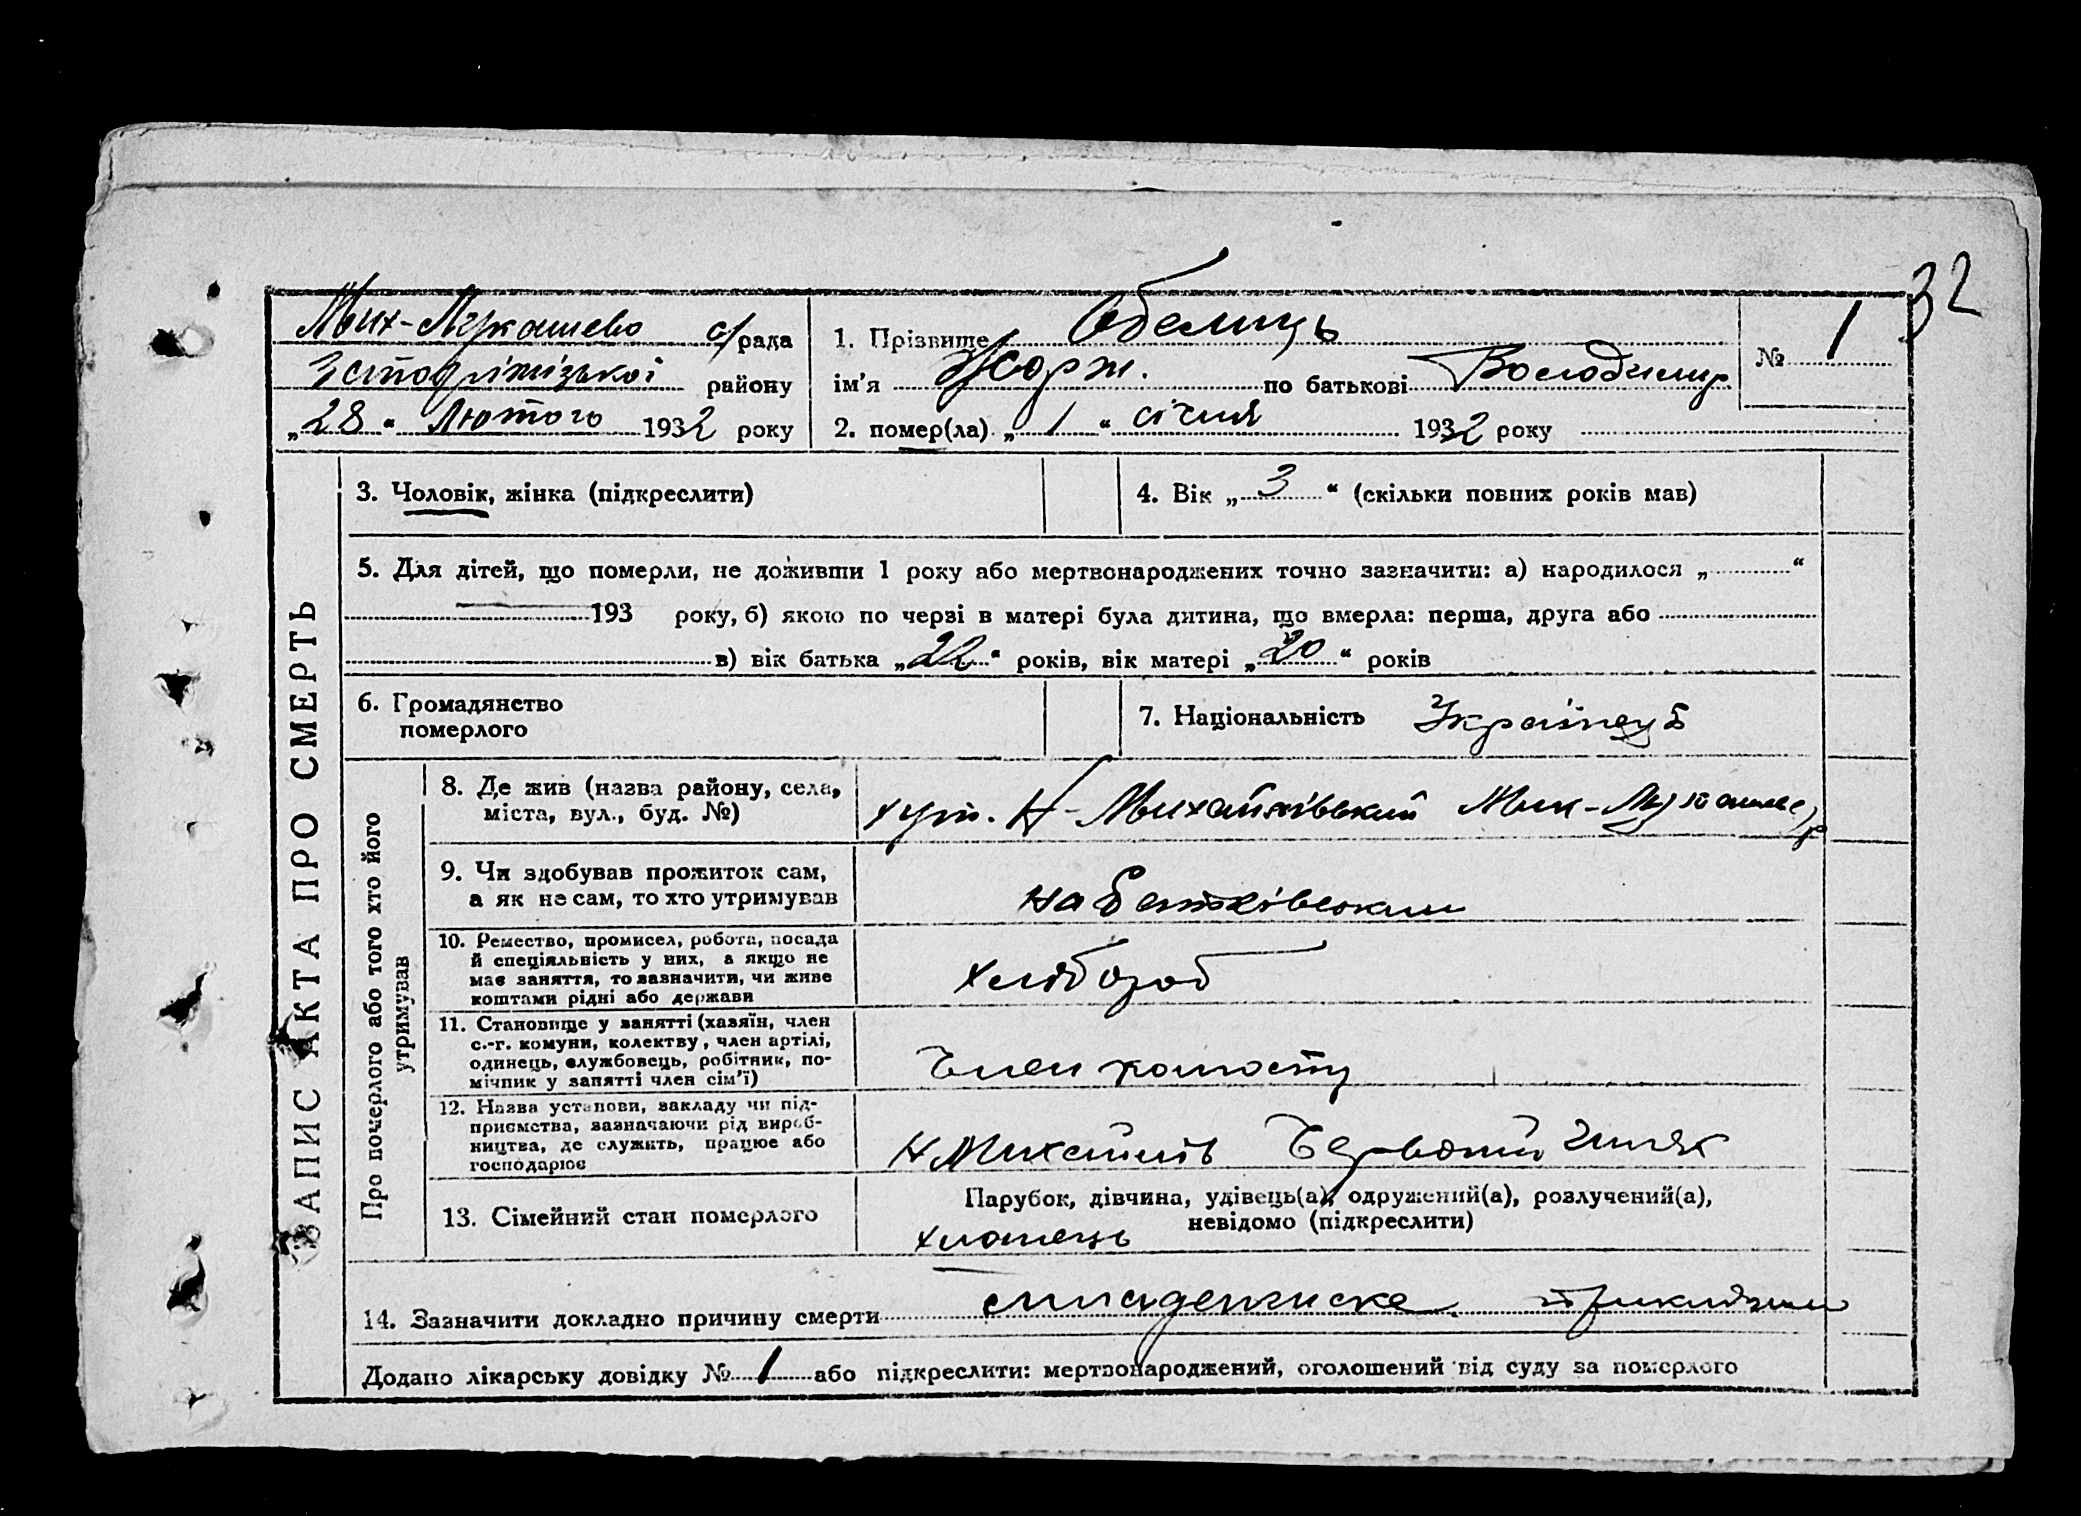 32
Мих-Лукашево с/рада
Запорізької району
„28“ Лютого 1932 року
1. Прізвище Обелиць
ім'я Жорж. по батькові Володимир
№ 1
2. помер(ла) „1“ січня 1932 року
ЗАПИС АКТА ПРО СМЕРТЬ
3. Чоловік, жінка (підкреслити)
4. Вік „3“ (скільки повних років мав)
5. Для дітей, що померли, не доживши 1 року або мертвонароджених точно зазначити: а) народилося „ “
193 року, б) якою по черзі в матері була дитина, що вмерла: перша, друга або
в) вік батька „22“ років, вік матері „20“ років
6. Громадянство
померлого
7. Національність Українець
Про померлого або того хто його
утримував
8. Де жив (назва району, села,
міста, вул., буд. №)
хут. Н-Михайлівський Мих-Лукашеср
9. Чи здобував прожиток сам,
а як не сам, то хто утримував
на батьківським
10. Ремество, промисел, робота, посада
й спеціяльність у них, а якщо не
має заняття, то зазначити, чи живе
коштами рідні або держави
хлібороб
11. Становище у занятті (хазяїн, член
с.-г. комуни, колектву, член артілі,
одинець, службовець, робітник, по-
мічник у занятті член сім'ї)
Член колгоспу
12. Назва установи, закладу чи під-
приємства, зазначаючи рід вироб-
ництва, де служить, працює або
господарює
Н Михайлів Червоний шлях
13. Сімейний стан померлого
Парубок, дівчина, удівець(а), одружений(а), розлучений(а),
невідомо (підкреслити)
хлопець
14. Зазначити докладно причину смерти
Додано лікарську довідку № 1 або підкреслити: мертвонароджений, оголошений від суду за померлого